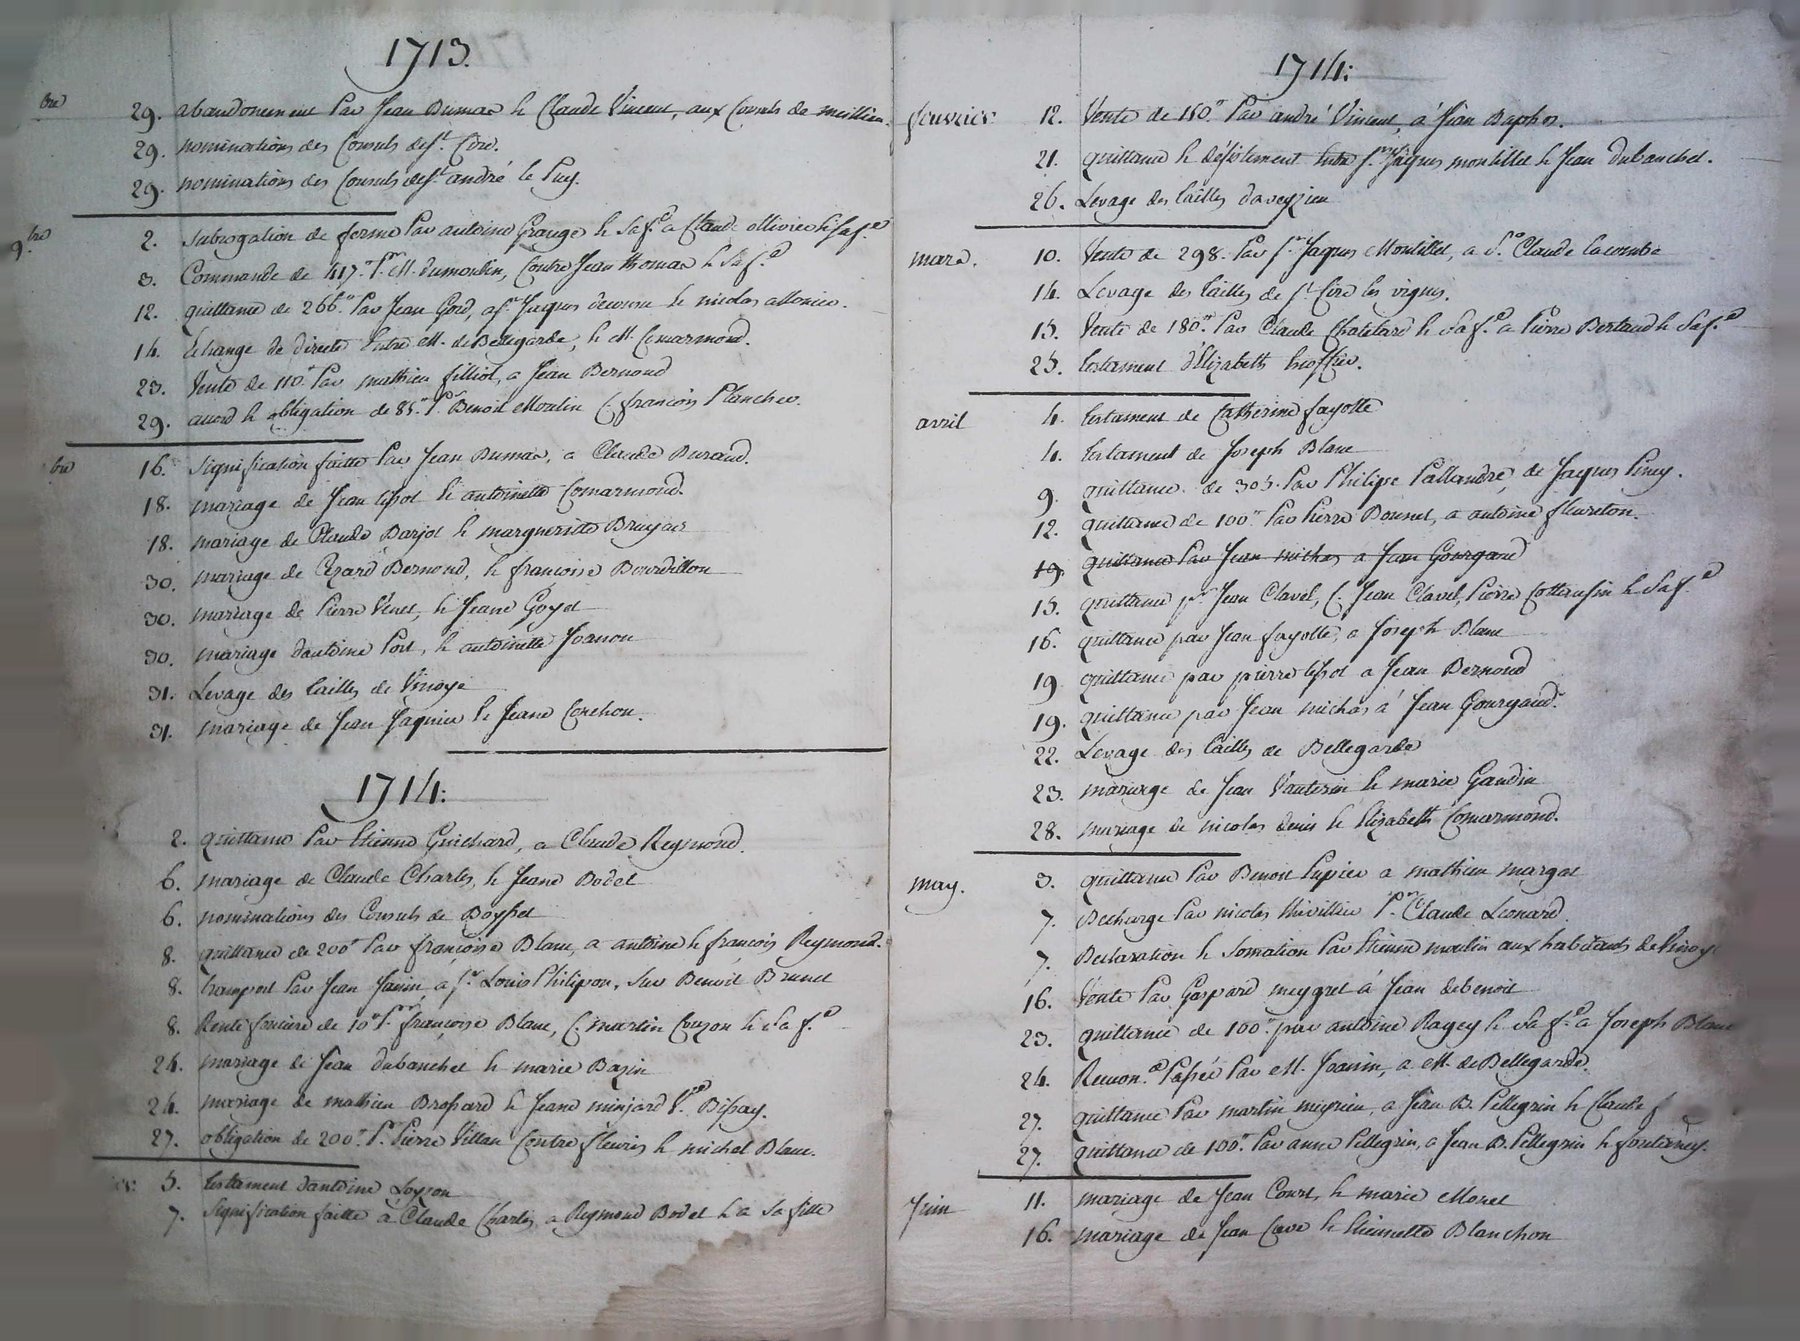 1713.
bre 29. abandonnement par Jean Dumas & Claude Vincent, aux Consuls de meillieu.
29. nominations des Consuls de St. Cire.
29. nominations des Consuls de St. andré le Puy.
9bre 2. Subrogation de ferme par antoine Grange & sa fe. a Claude ollivier & sa fe.
3. Commande de 417# pr. M. dumoulin, Contre Jean thomas & sa fe.
12. quittance de 266# par Jean Gord, a sr. Jaques & nicolas
14. Echange de directe Entre M. de Bellegarde, & M. Comarmond.
23. Vente de 110# par mathieu filliol, a Jean Bernond
29. accord & obligation de 85# pr. Benoit Moulin C. françois Plancher.
bre 16. Signification faitte par Jean Dumas, a Claude Durand.
18. mariage de Jean tissot & antoinette Comarmond.
18. mariage de Claude Barjot & margueritte Bruyas
30. mariage de Cezard Bernond, & françoise Bourdillon
30. mariage de Pierre Venet, & Jeane Goyet
30. mariage dantoine Port, & antoinette Joanon
31. Levage des tailles de Viroye
31. mariage de Jean Jaquier & Jeane Conchon.
1714:
2. quittance par Etienne Guichard, a Claude Reymond.
6. mariage de Claude Charles, & Jeane Bodet
6. nominations des Consuls de Boysset
8. quittance de 200# par françoise Blanc, a antoine & françois Reymond.
8. transport par Jean Janin, a sr. Louis Philipon, sur Benoit Brunet
8. Rente fonciere de 10# pr. françoise Blanc, C. martin Crozon & sa fe.
24. mariage de Jean dubanchet & marie Bazin
24. mariage de mathieu Brossard & Jeane minjard Ve. Bissay.
27. obligation de 200# pr. Pierre Villan Contre fleuris & michel Blanc.
5. testament dantoine Loyzon
7. Signification faitte à Claude Charles, a Reymond Bodet & a sa fille
1714:
fevrier 12. Vente de 150# par andré Vincent, à Jean Baptros.
21. quittance & désistement Entre sr. Jaques montillet & Jean dubanchet.
26. Levage des tailles daveyzieu
mars. 10. Vente de 298# par sr. Jaques Montillet, a sr. Claude lacombe
14. Levage des tailles de st. Cire les vignes.
15. Vente de 180# par Claude Chatelard & sa fe. a Pierre Bertaud & sa fe.
25. testament d'Elizabeth
avril 4. testament de Catherine fayolle
4. testament de Joseph Blanc
9. quittance de 305# par Philipe Pallandre, de Jaques Piney.
12. quittance de 100# par Pierre Bonnet, a antoine fleureton.
19. quittance par Jean michas a Jean Gourgaud
15. quittance pr. Jean Clavel, C. Jean Clavel, Pierre Cottansin & sa fe.
16. quittance par Jean fayolle, a Joseph Blanc
19. quittance par pierre tissot a Jean Bernond
19. quittance par Jean michas à Jean Gourgaud.
22. Levage des tailles de Bellegarde
23. mariage de Jean Vauterin & marie Gaudin
28. mariage de nicolas denis & Elizabeth Comarmond.
may. 3. quittance par Benoit Pupier a mathieu margat
7. Decharge par nicolas thivillier pr. Claude Leonard.
7. Declaration & Somation par Etienne moulin aux habitants de Viroye
16. Vente par Gaspard meygret à Jean debenoit
23. quittance de 100# par antoine Ragey & sa fe. a Joseph Blanc
24. Reconce. Passée par M. Joanin, a M. de Bellegarde.
27. quittance par martin meyrieu, a Jean B. Pellegrin & Claude f
27. quittance de 100# par anne Pellegrin, a Jean B. Pellegrin & fontaney.
Juin 11. mariage de Jean Court, & marie Monet
16. mariage de Jean Cave & Etiennette Blanchon